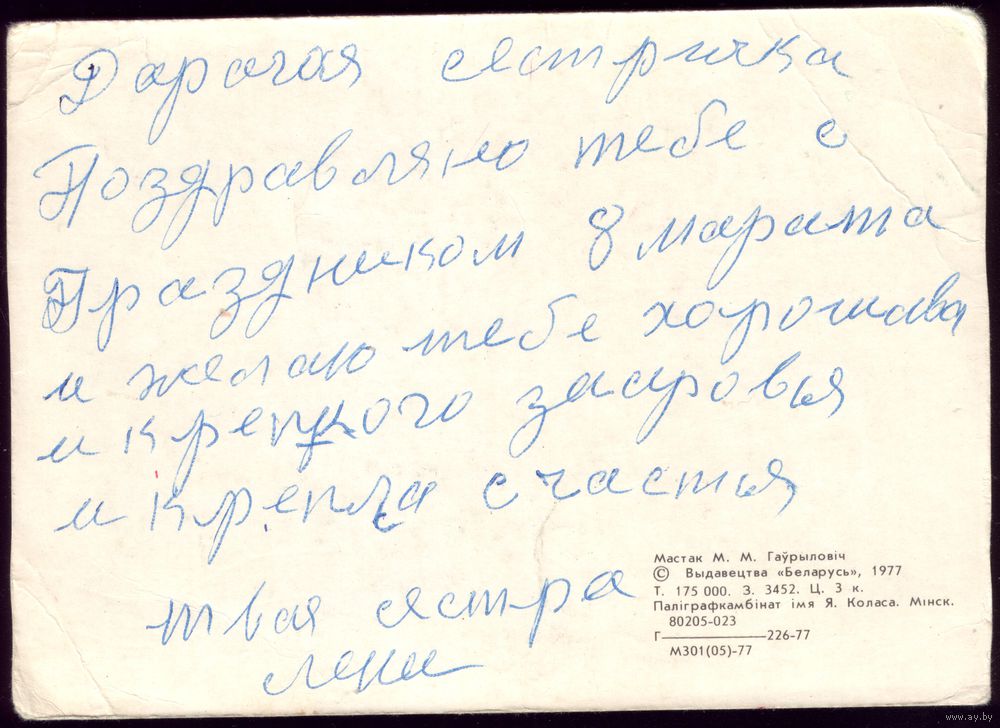 Дарагая сястричка
Поздравляю тебе с
Праздником 8 марата
и желаю тебе хорошава
и крепкого здаровья
и крепла счастья
твая сястра
лена
Мастак М. М. Гаўрыловіч
© Выдавецтва «Беларусь», 1977
Т. 175 000. З. 3452. Ц. 3 к.
Паліграфкамбінат імя Я. Коласа. Мінск.
80205-023
Г————226-77
М301(05)-77
www.ay.by